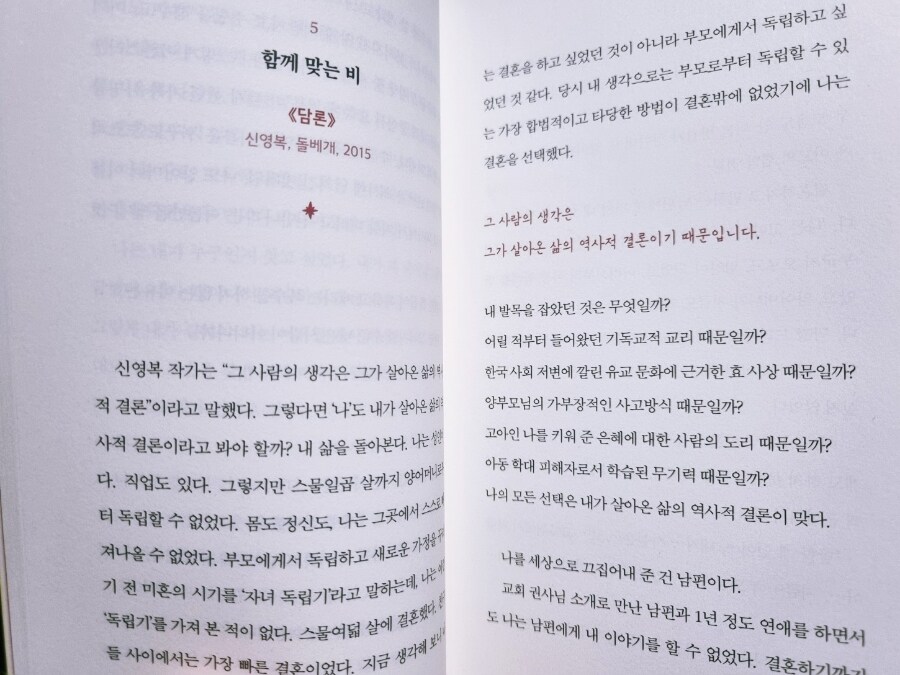 5
함께 맞는 비
《담론》
신영복, 돌베개, 2015
신영복 작가는 “그 사람의 생각은 그가 살아온 삶의
적 결론”이라고 말했다. 그렇다면 ‘나’도 내가 살아온 삶의
사적 결론이라고 봐야 할까? 내 삶을 돌아본다. 나는
다. 직업도 있다. 그렇지만 스물일곱 살까지
터 독립할 수 없었다. 몸도 정신도, 나는 그곳에서 스스로
져나올 수 없었다. 부모에게서 독립하고 새로운 가정을
기 전 미혼의 시기를 ‘자녀 독립기’라고 말하는데, 나는
‘독립기’를 가져 본 적이 없다. 스물여덟 살에 결혼했다.
들 사이에서는 가장 빠른 결혼이었다. 지금 생각해 보니
는 결혼을 하고 싶었던 것이 아니라 부모에게서 독립하고 싶
었던 것 같다. 당시 내 생각으로는 부모로부터 독립할 수 있
는 가장 합법적이고 타당한 방법이 결혼밖에 없었기에 나는
결혼을 선택했다.
그 사람의 생각은
그가 살아온 삶의 역사적 결론이기 때문입니다.
내 발목을 잡았던 것은 무엇일까?
어릴 적부터 들어왔던 기독교적 교리 때문일까?
한국 사회 저변에 깔린 유교 문화에 근거한 효 사상 때문일까?
양부모님의 가부장적인 사고방식 때문일까?
고아인 나를 키워 준 은혜에 대한 사람의 도리 때문일까?
아동 학대 피해자로서 학습된 무기력 때문일까?
나의 모든 선택은 내가 살아온 삶의 역사적 결론이 맞다.
나를 세상으로 끄집어내 준 건 남편이다.
교회 권사님 소개로 만난 남편과 1년 정도 연애를 하면서
도 나는 남편에게 내 이야기를 할 수 없었다. 결혼하기까지